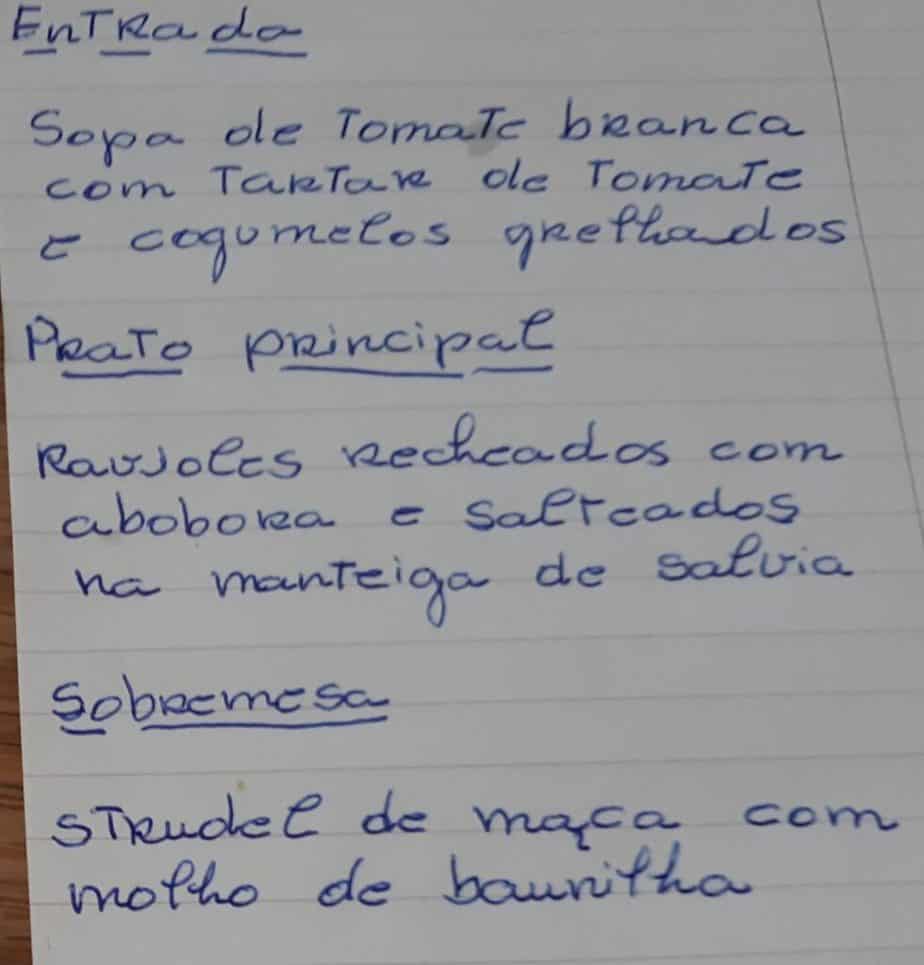 Entrada
Sopa de Tomate branca
com Tartar de Tomate
e cogumelos grelhados
Prato principal
Ravioles recheados com
abobora e salteados
na manteiga de salvia
Sobremesa
Strudel de maçca com
molho de baunilha